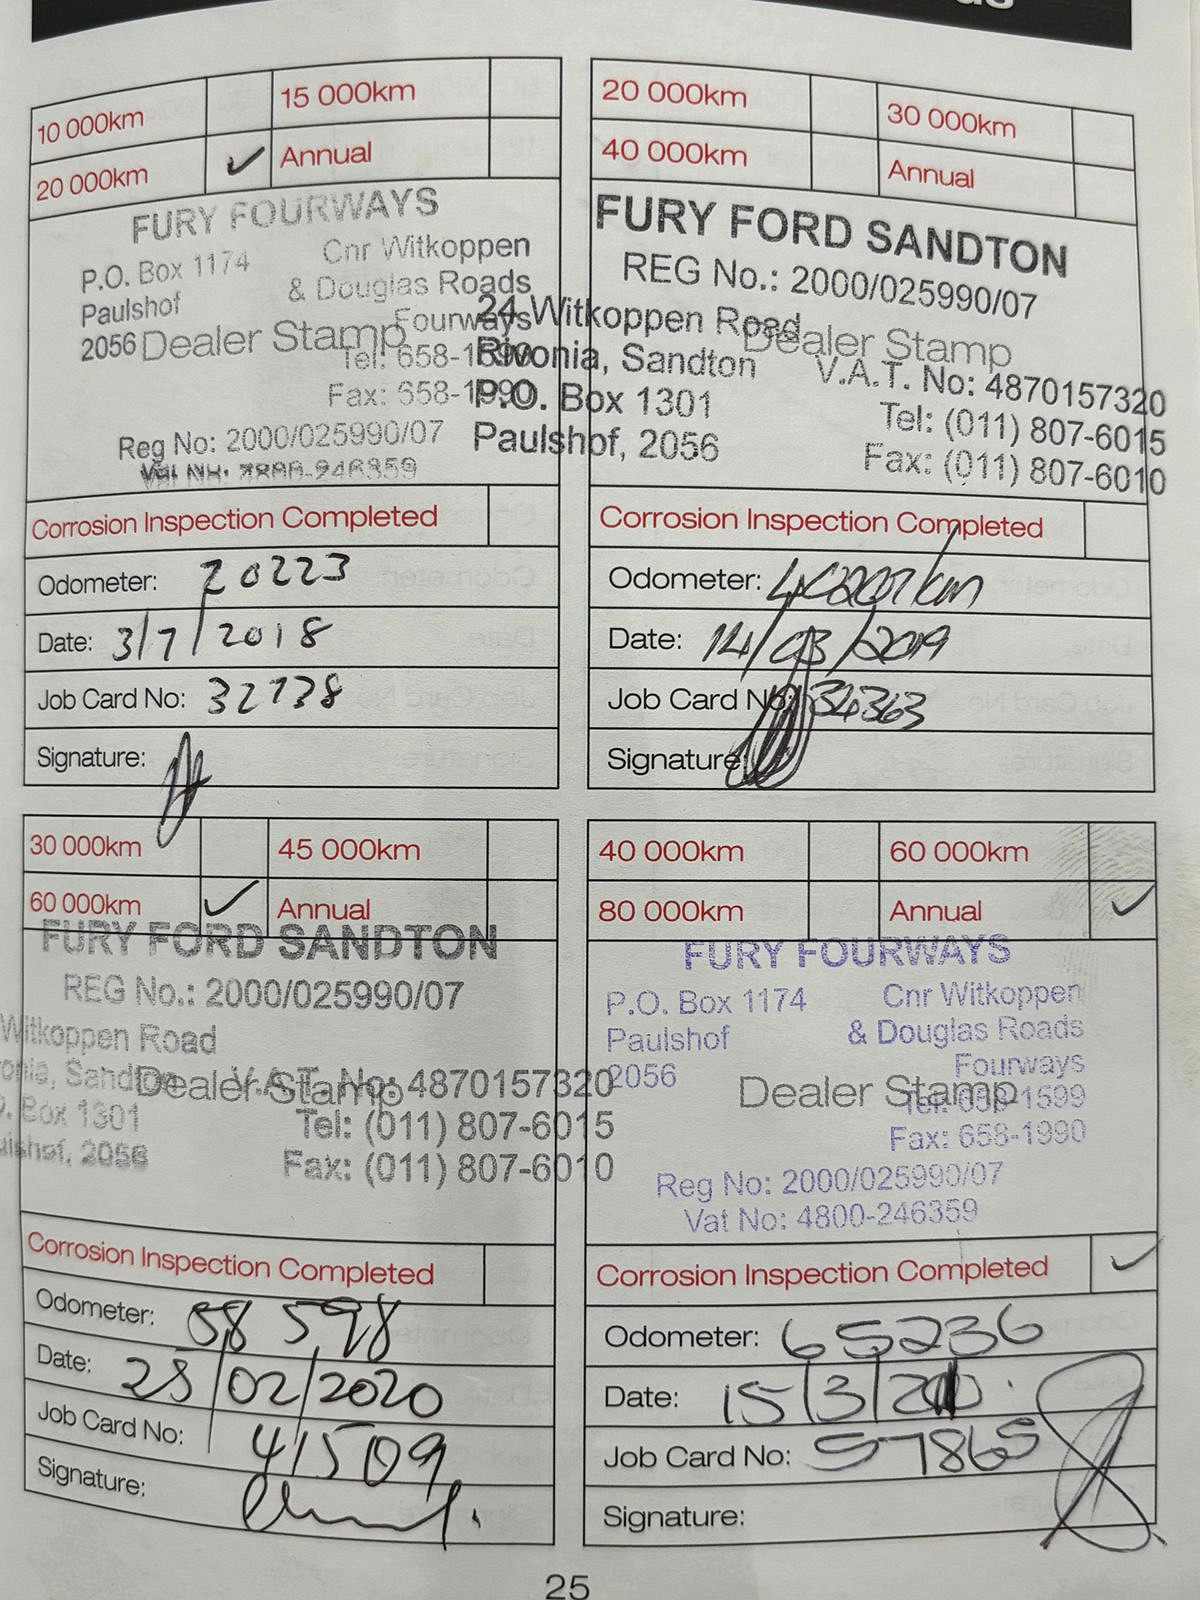 10 000km
15 000km
20 000km ✓
Annual
FURY FOURWAYS
P.O. Box 1174
Paulshof
2056
Cnr Witkoppen
& Douglas Roads
Fourways
Dealer Stamp
Tel: 658-1599
Fax: 658-1990
Reg No: 2000/025990/07
Vat No: 4800-246359
Corrosion Inspection Completed
Odometer: 20223
Date: 3/7/2018
Job Card No: 32738
Signature:
20 000km
30 000km
40 000km
Annual
FURY FORD SANDTON
REG No.: 2000/025990/07
24 Witkoppen Road
Rivonia, Sandton
P.O. Box 1301
Paulshof, 2056
Dealer Stamp
V.A.T. No: 4870157320
Tel: (011) 807-6015
Fax: (011) 807-6010
Corrosion Inspection Completed
Odometer: km
Date: 14/03/2019
Job Card No: 34363
Signature:
30 000km
45 000km
60 000km ✓
Annual
FURY FORD SANDTON
REG No.: 2000/025990/07
Witkoppen Road
Box 1301
2056
Dealer Stamp
V.A.T. No: 4870157320
Tel: (011) 807-6015
Fax: (011) 807-6010
Corrosion Inspection Completed
Odometer: 58 598
Date: /02/2020
Job Card No: 41509
Signature:
40 000km
60 000km
80 000km
Annual ✓
FURY FOURWAYS
P.O. Box 1174
Paulshof
2056
Cnr Witkoppen
& Douglas Roads
Fourways
Dealer Stamp
Tel: 658-1599
Fax: 658-1990
Reg No: 2000/025990/07
Vat No: 4800-246359
Corrosion Inspection Completed ✓
Odometer: 65236
Date: 15/3/
Job Card No: 57865
Signature:
25